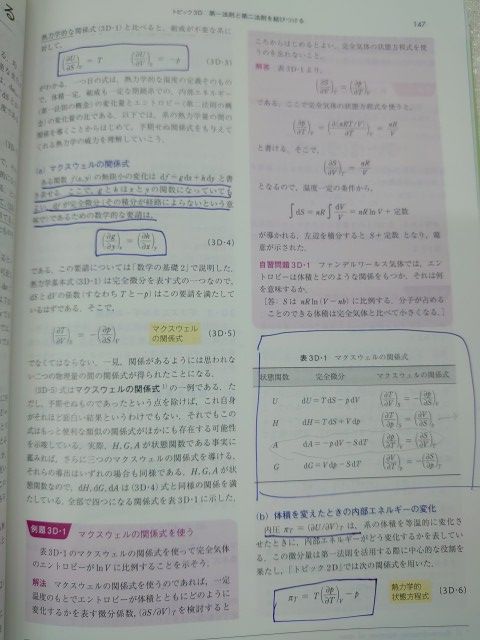 トピック3D 第一法則と第二法則を結びつける
147
熱力学的な関係式(3D・1)と比べると，組成が不変な系に
対して，
(∂U/∂S)_V = T　(∂U/∂V)_S = −p　(3D・3)
がわかる．一つ目の式は，熱力学的な温度の定義そのもの
で，体積一定，組成も一定な閉鎖系での，内部エネルギー
(第一法則の概念)の変化量とエントロピー(第二法則の概
念)の変化量の比である．以下では，系の熱力学量の間の
関係を導くことからはじめて，予期せぬ関係式をも与えて
くれる熱力学の威力を理解していこう．
(a) マクスウェルの関係式
ある関数 f(x,y) の無限小の変化は df＝gdx＋hdy と書
き表せる．ここで，g と h は x と y の関数になっていても
よい．df が完全微分(その積分が経路によらないという意
味で)であるための数学的な要請は，
(∂g/∂y)_x = (∂h/∂x)_y　(3D・4)
である．この要請については「数学の基礎2」で説明した．
熱力学基本式(3D・1)は完全微分を表す式の一つなので，
dS と dV の係数(すなわち T と −p)はこの要請を満たして
いるはずである．そこで，
(∂T/∂V)_S = −(∂p/∂S)_V　マクスウェルの関係式　(3D・5)
でなくてはならない．一見，関係があるようには思われな
い二つの物理量の間の関係式が得られたことになる．
(3D・5)式はマクスウェルの関係式¹⁾の一例である．た
だし，予期せぬものであったという点を除けば，これ自身
がそれほど面白い結果というわけでもない．それでもこの
式はもっと便利な類似の関係式がほかにも存在する可能性
を示唆している．実際，H, G, A が状態関数である事実に
鑑みれば，さらに三つのマクスウェルの関係式を導ける．
それらの導出はいずれの場合も同様である．H, G, A が状
態関数なので，dH, dG, dA は(3D・4)式と同様の関係を満
たしている．全部で四つになる関係式を表3D・1に示した．
例題3D・1　マクスウェルの関係式を使う
表3D・1のマクスウェルの関係式を使って完全気体
のエントロピーが ln V に比例することを示そう．
解法　マクスウェルの関係式を使うのであれば，一定
温度のもとでエントロピーが体積とともにどのように
変化するかを表す微分係数，(∂S/∂V)_T を検討すると
ころからはじめるとよい．完全気体の状態方程式を使
うのを忘れないこと．
解答　表3D・1より，
(∂S/∂V)_T = (∂p/∂T)_V
である．ここで完全気体の状態方程式を使うと，
(∂p/∂T)_V = (∂(nRT/V)/∂T)_V = nR/V
と書ける．そこで，
(∂S/∂V)_T = nR/V
となるので，温度一定の条件から，
∫dS = nR∫dV/V = nR ln V + 定数
が導かれる．左辺を積分すると S＋定数 となり，題
意が示された．
自習問題3D・1　ファンデルワールス気体では，エン
トロピーは体積とどのような関係をもつか．それは何
を意味するか．
[答：S は nR ln(V − nb) に比例する．分子が占める
ことのできる体積は完全気体と比べて小さくなる．]
表3D・1　マクスウェルの関係式
状態関数　完全微分　マクスウェルの関係式
U　dU = TdS − pdV　(∂T/∂V)_S = −(∂p/∂S)_V
H　dH = TdS + Vdp　(∂T/∂p)_S = (∂V/∂S)_p
A　dA = −pdV − SdT　(∂p/∂T)_V = (∂S/∂V)_T
G　dG = Vdp − SdT　(∂V/∂T)_p = −(∂S/∂p)_T
(b) 体積を変えたときの内部エネルギーの変化
内圧 π_T ＝ (∂U/∂V)_T は，系の体積を等温的に変化さ
せたときに，内部エネルギーがどう変化するかを表してい
る．この微分量は第一法則を活用する際に中心的な役割を
果たし，「トピック2D」では次の関係式を用いた．
π_T = T(∂p/∂T)_V − p　熱力学的状態方程式　(3D・6)